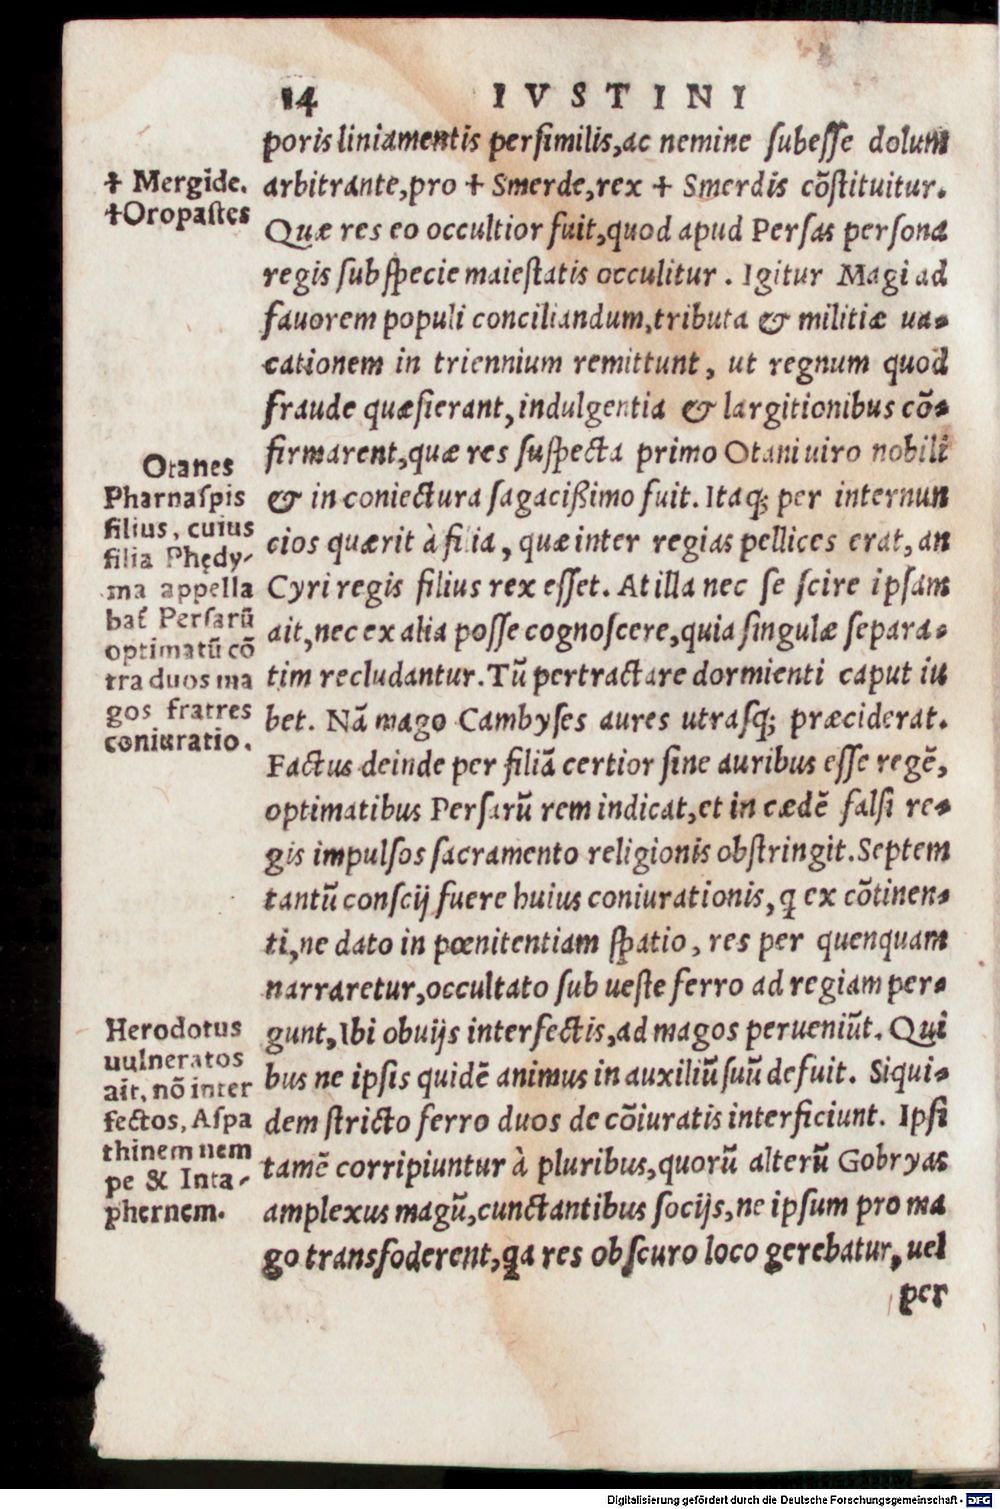 14 IVSTINI
poris liniamentis persimilis, ac nemine subesse dolum
arbitrante, pro + Smerde, rex + Smerdis cõstituitur.
Quæ res eo occultior fuit, quod apud Persas persona
regis sub specie maiestatis occulitur. Igitur Magi ad
fauorem populi conciliandum, tributa & militiæ ua-
cationem in triennium remittunt, ut regnum quod
fraude quæsierant, indulgentia & largitionibus cõ-
firmarent, quæ res suspecta primo Otani uiro nobili
& in coniectura sagacißimo fuit. Itaq; per internun
cios quærit à filia, quæ inter regias pellices erat, an
Cyri regis filius rex esset. At illa nec se scire ipsam
ait, nec ex alia posse cognoscere, quia singulæ separa-
tim recludantur. Tũ pertractare dormienti caput iu
bet. Nã mago Cambyses aures utrasq; præciderat.
Factus deinde per filiã certior sine auribus esse regẽ,
optimatibus Persarũ rem indicat, et in cædẽ falsi re-
gis impulsos sacramento religionis obstringit. Septem
tantũ conscij fuere huius coniurationis, q ex cõtinen-
ti, ne dato in pœnitentiam spatio, res per quenquam
narraretur, occultato sub ueste ferro ad regiam per-
gunt, Ibi obuijs interfectis, ad magos perueniũt. Qui
bus ne ipsis quidẽ animus in auxiliũ suũ defuit. Siqui-
dem stricto ferro duos de cõiuratis interficiunt. Ipsi
tamẽ corripiuntur à pluribus, quorũ alterũ Gobryas
amplexus magũ, cunctantibus socijs, ne ipsum pro ma
go transfoderent, qa res obscuro loco gerebatur, uel
per
+ Mergide.
+Oropastes
Otanes
Pharnaspis
filius, cuius
filia Phędy-
ma appella
bat̃ Persarũ
optimatũ cõ
tra duos ma
gos fratres
coniuratio.
Herodotus
uulneratos
ait, nõ inter
fectos, Aspa
thinem nem
pe & Inta-
phernem.
Digitalisierung gefördert durch die Deutsche Forschungsgemeinschaft - DFG